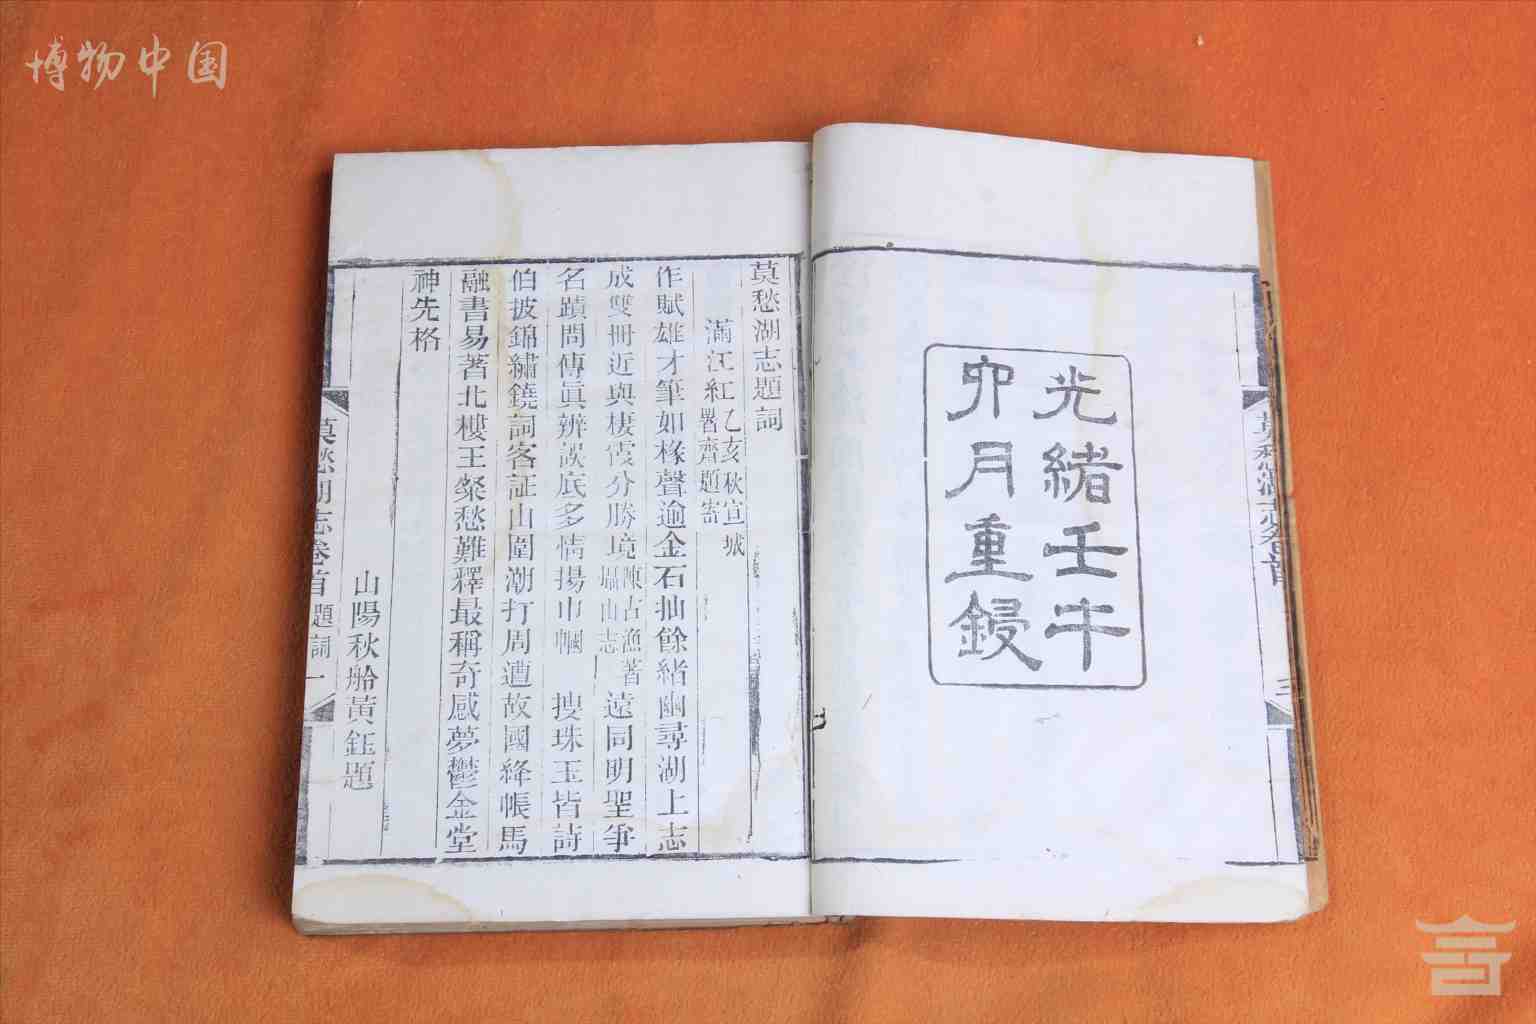 博物中国
光緒壬午
卯月重鋟
莫愁湖志題詞
滿江紅 乙亥秋宣城
署齋題寄
作賦雄才筆如椽聲逾金石抽餘緒幽尋湖上志
成雙冊近與棲霞分勝境陳古漁著攝山志遠同明聖爭
名蹟問傳眞辨誤底多情揚巾幗 搜珠玉皆詩
伯披錦繡鐃詞客証山圍潮打周遭故國絳帳馬
融書易著北樓王粲愁難釋最稱奇感夢鬱金堂
神先格
山陽秋舲黃鈺題
莫愁湖志卷首 題詞 一
莫愁湖志卷首 三